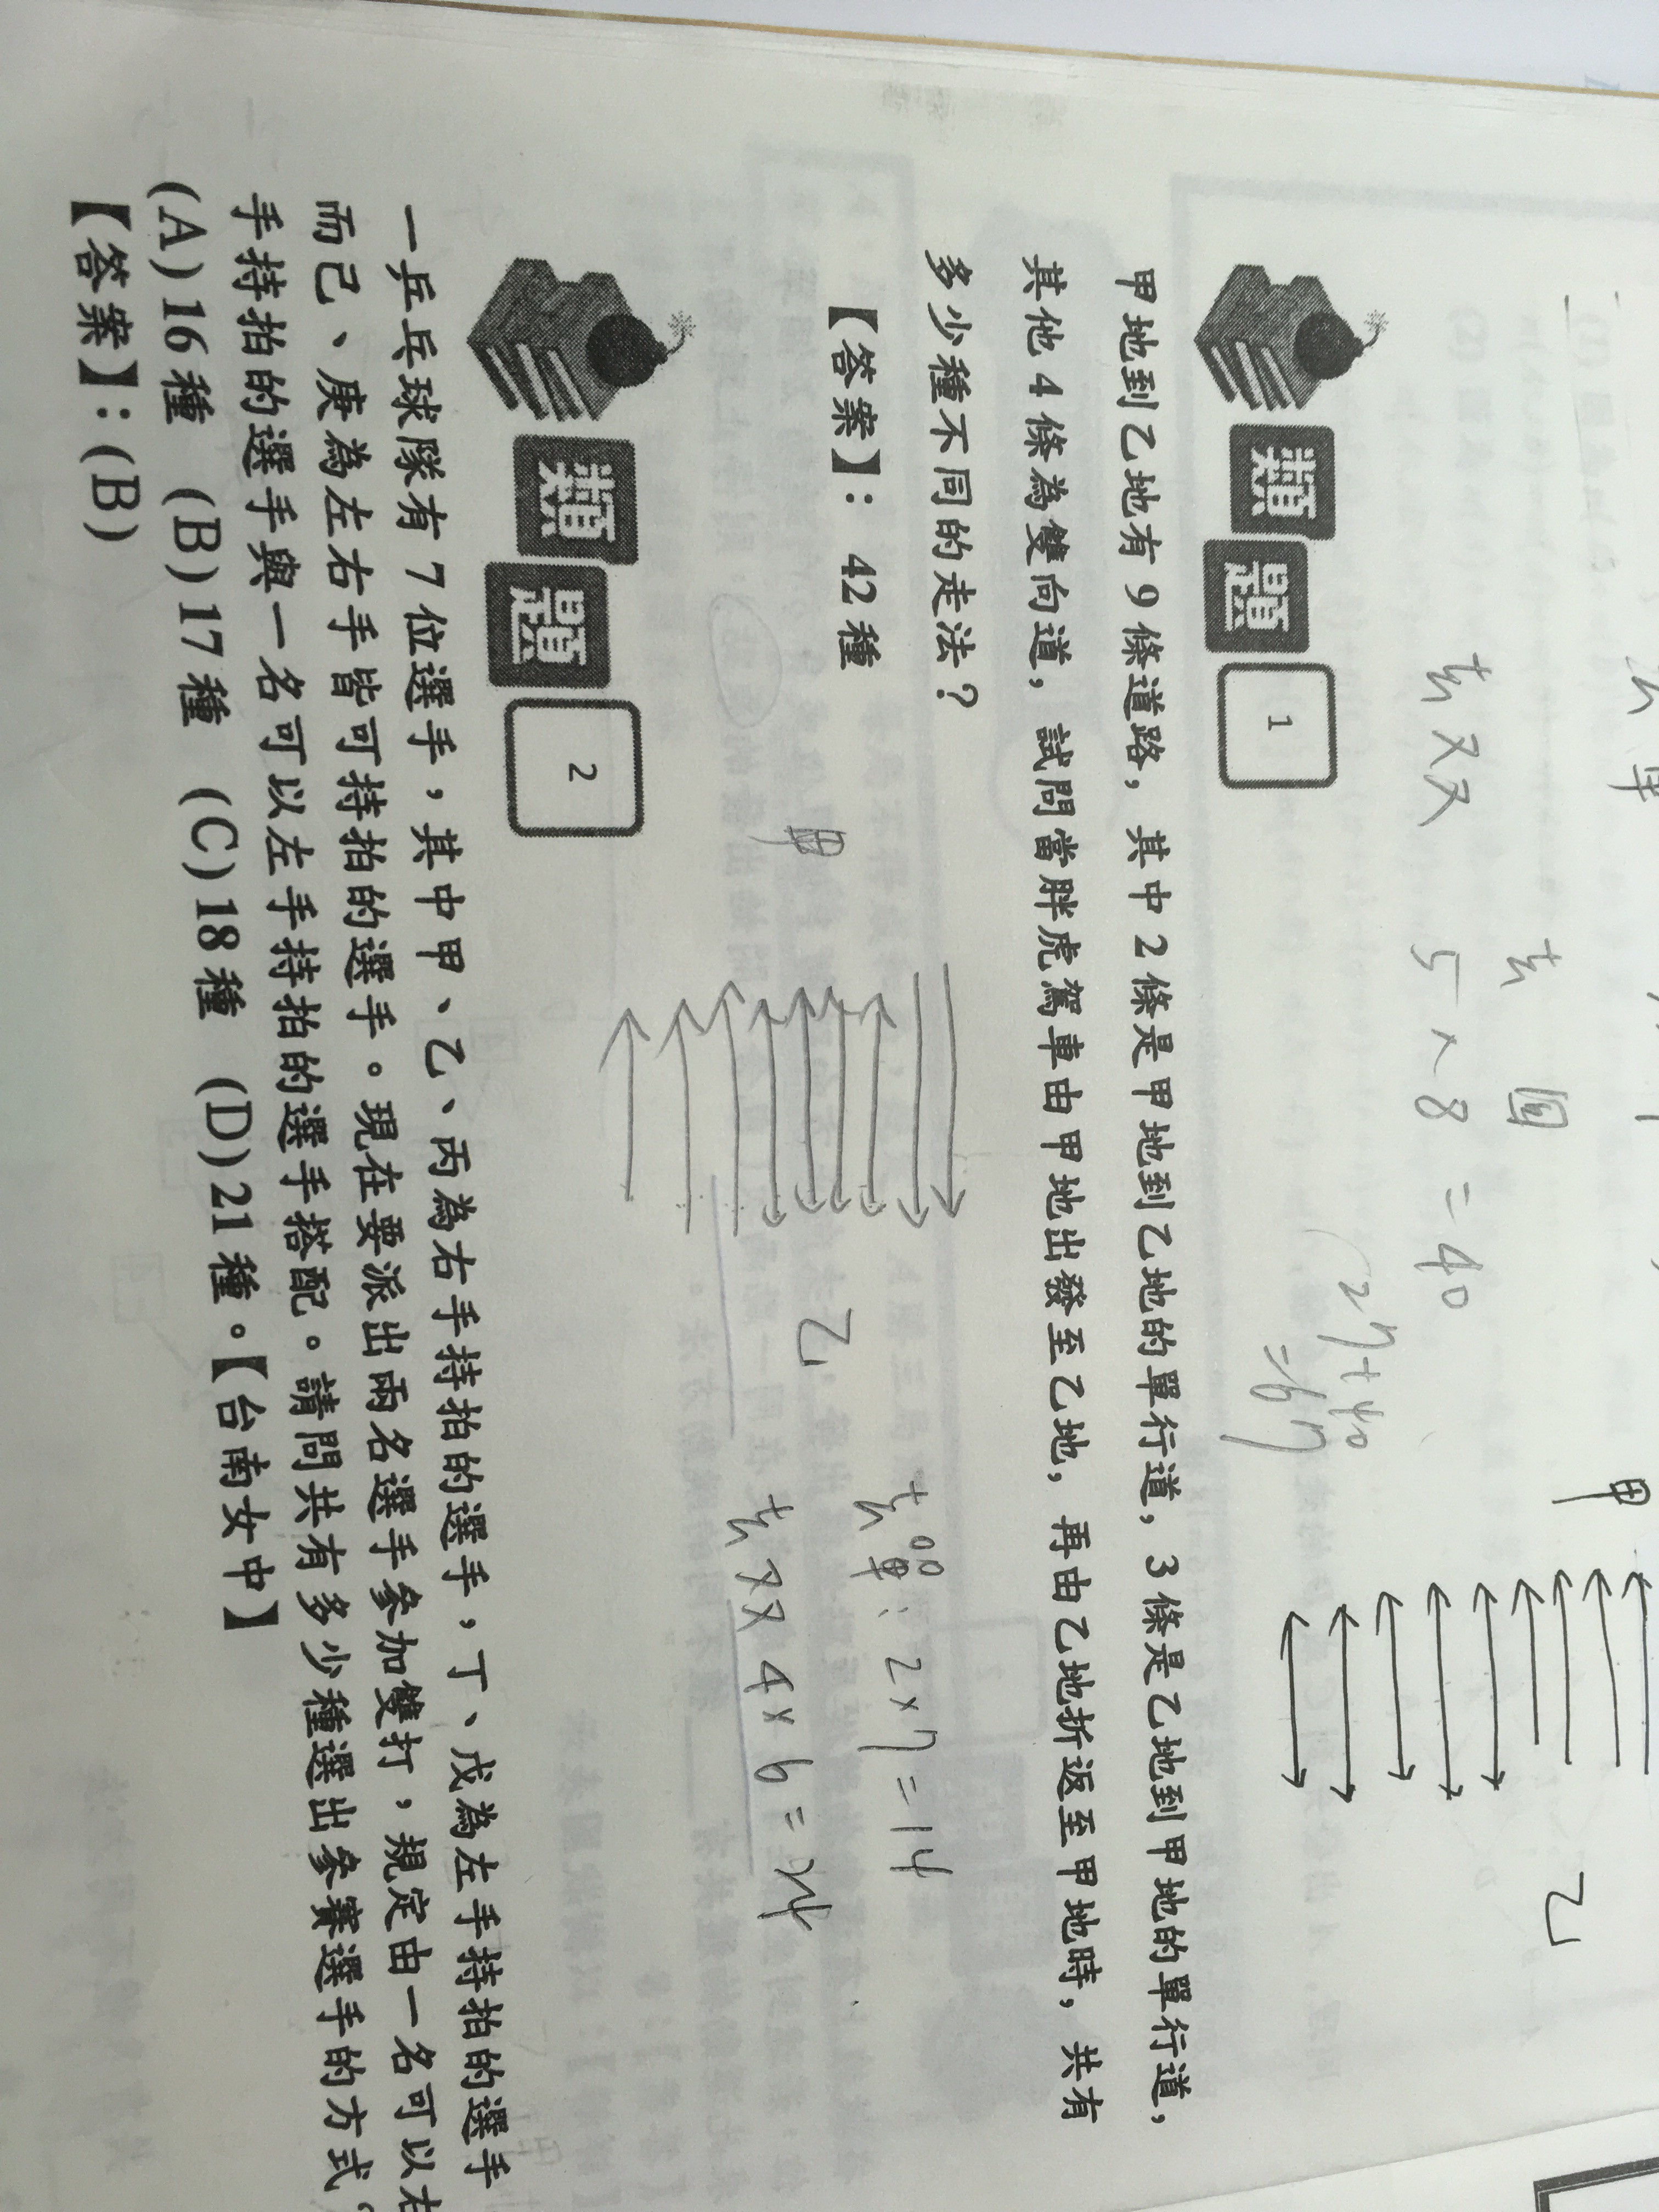 去又又 5 × 8 = 40
27+40
=67
甲
乙
類題 1
甲地到乙地有 9 條道路，其中 2 條是甲地到乙地的單行道，3 條是乙地到甲地的單行道，
其他 4 條為雙向道，試問當胖虎駕車由甲地出發至乙地，再由乙地折返至甲地時，共有
多少種不同的走法？
【答案】：42 種
甲
乙
去單：2×7=14
去又又 4×6=24
類題 2
一乒乓球隊有 7 位選手，其中甲、乙、丙為右手持拍的選手，丁、戊為左手持拍的選手
而己、庚為左右手皆可持拍的選手。現在要派出兩名選手參加雙打，規定由一名可以右
手持拍的選手與一名可以左手持拍的選手搭配。請問共有多少種選出參賽選手的方式？
(A)16 種 (B)17 種 (C)18 種 (D)21 種。【台南女中】
【答案】：(B)